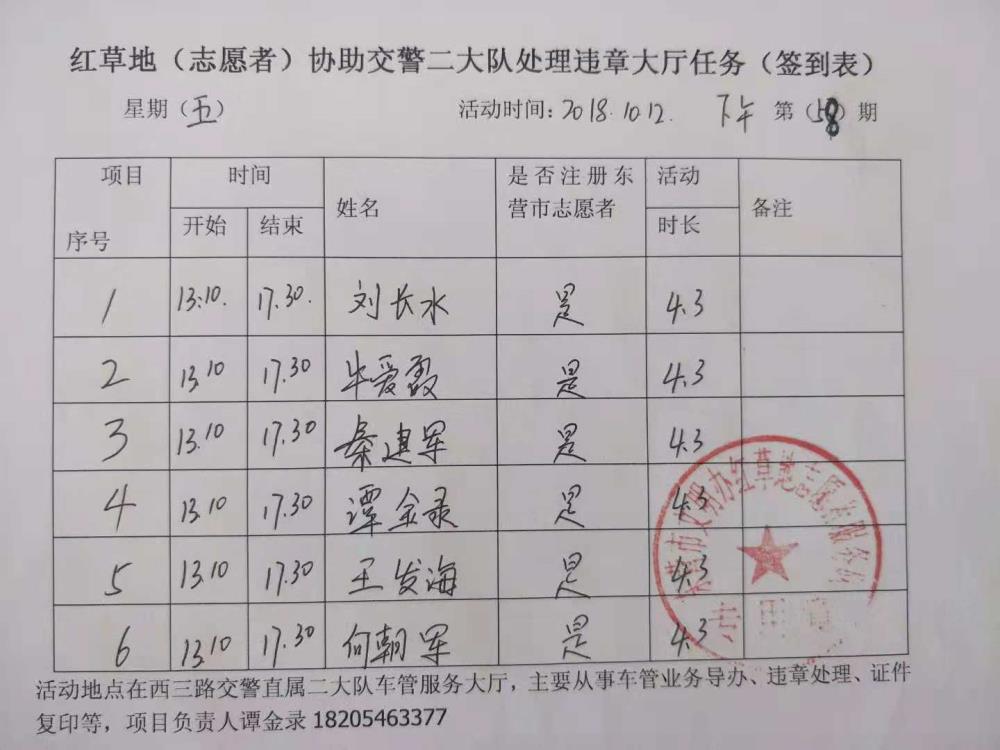 红草地（志愿者）协助交警二大队处理违章大厅任务（签到表）
星期（五） 活动时间：2018.10.12. 下午 第（58）期
项目 时间 姓名 是否注册东 活动 备注
序号 开始 结束 营市志愿者 时长
1 13:10. 17.30. 刘长水 是 4.3
2 13.10 17.30 牛爱霞 是 4.3
3 13.10 17.30 秦建军 是 4.3
4 13.10 17.30 谭金录 是 4.3
5 13.10 17.30 王发海 是 4.3
6 13.10 17.30 何朝军 是 4.3
东营市文明办红草地志愿者服务
专用章
活动地点在西三路交警直属二大队车管服务大厅，主要从事车管业务导办、违章处理、证件
复印等，项目负责人谭金录 18205463377